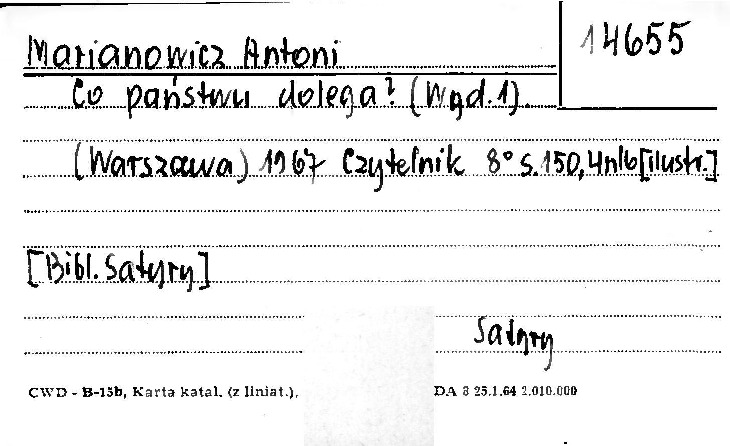 14655
Marianowicz Antoni
Co państwu dolega? (Wyd. 1).
(Warszawa) 1967 Czytelnik 8° s. 150, 4nlb [ilustr.]
[Bibl. Satyry]
Satyry
CWD - B-15b, Karta katal. (z liniat.), DA 8 25.1.64 2.010.000